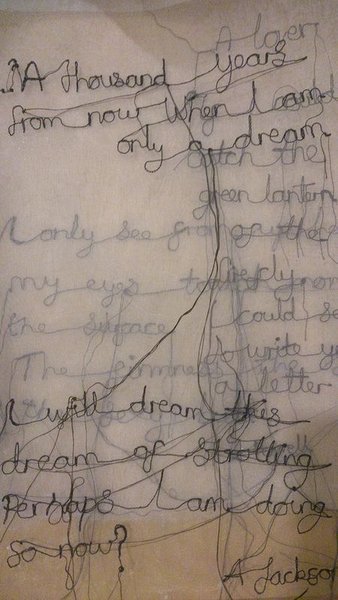 A thousand years
from now When I am
only a dream
I will dream this
dream of strolling
Perhaps I am doing
so now?
A Jackson
A lover
catch the
green lantern
of the
firefly
I could
to write
a letter
I only see
my eyes
the surface
The firmness